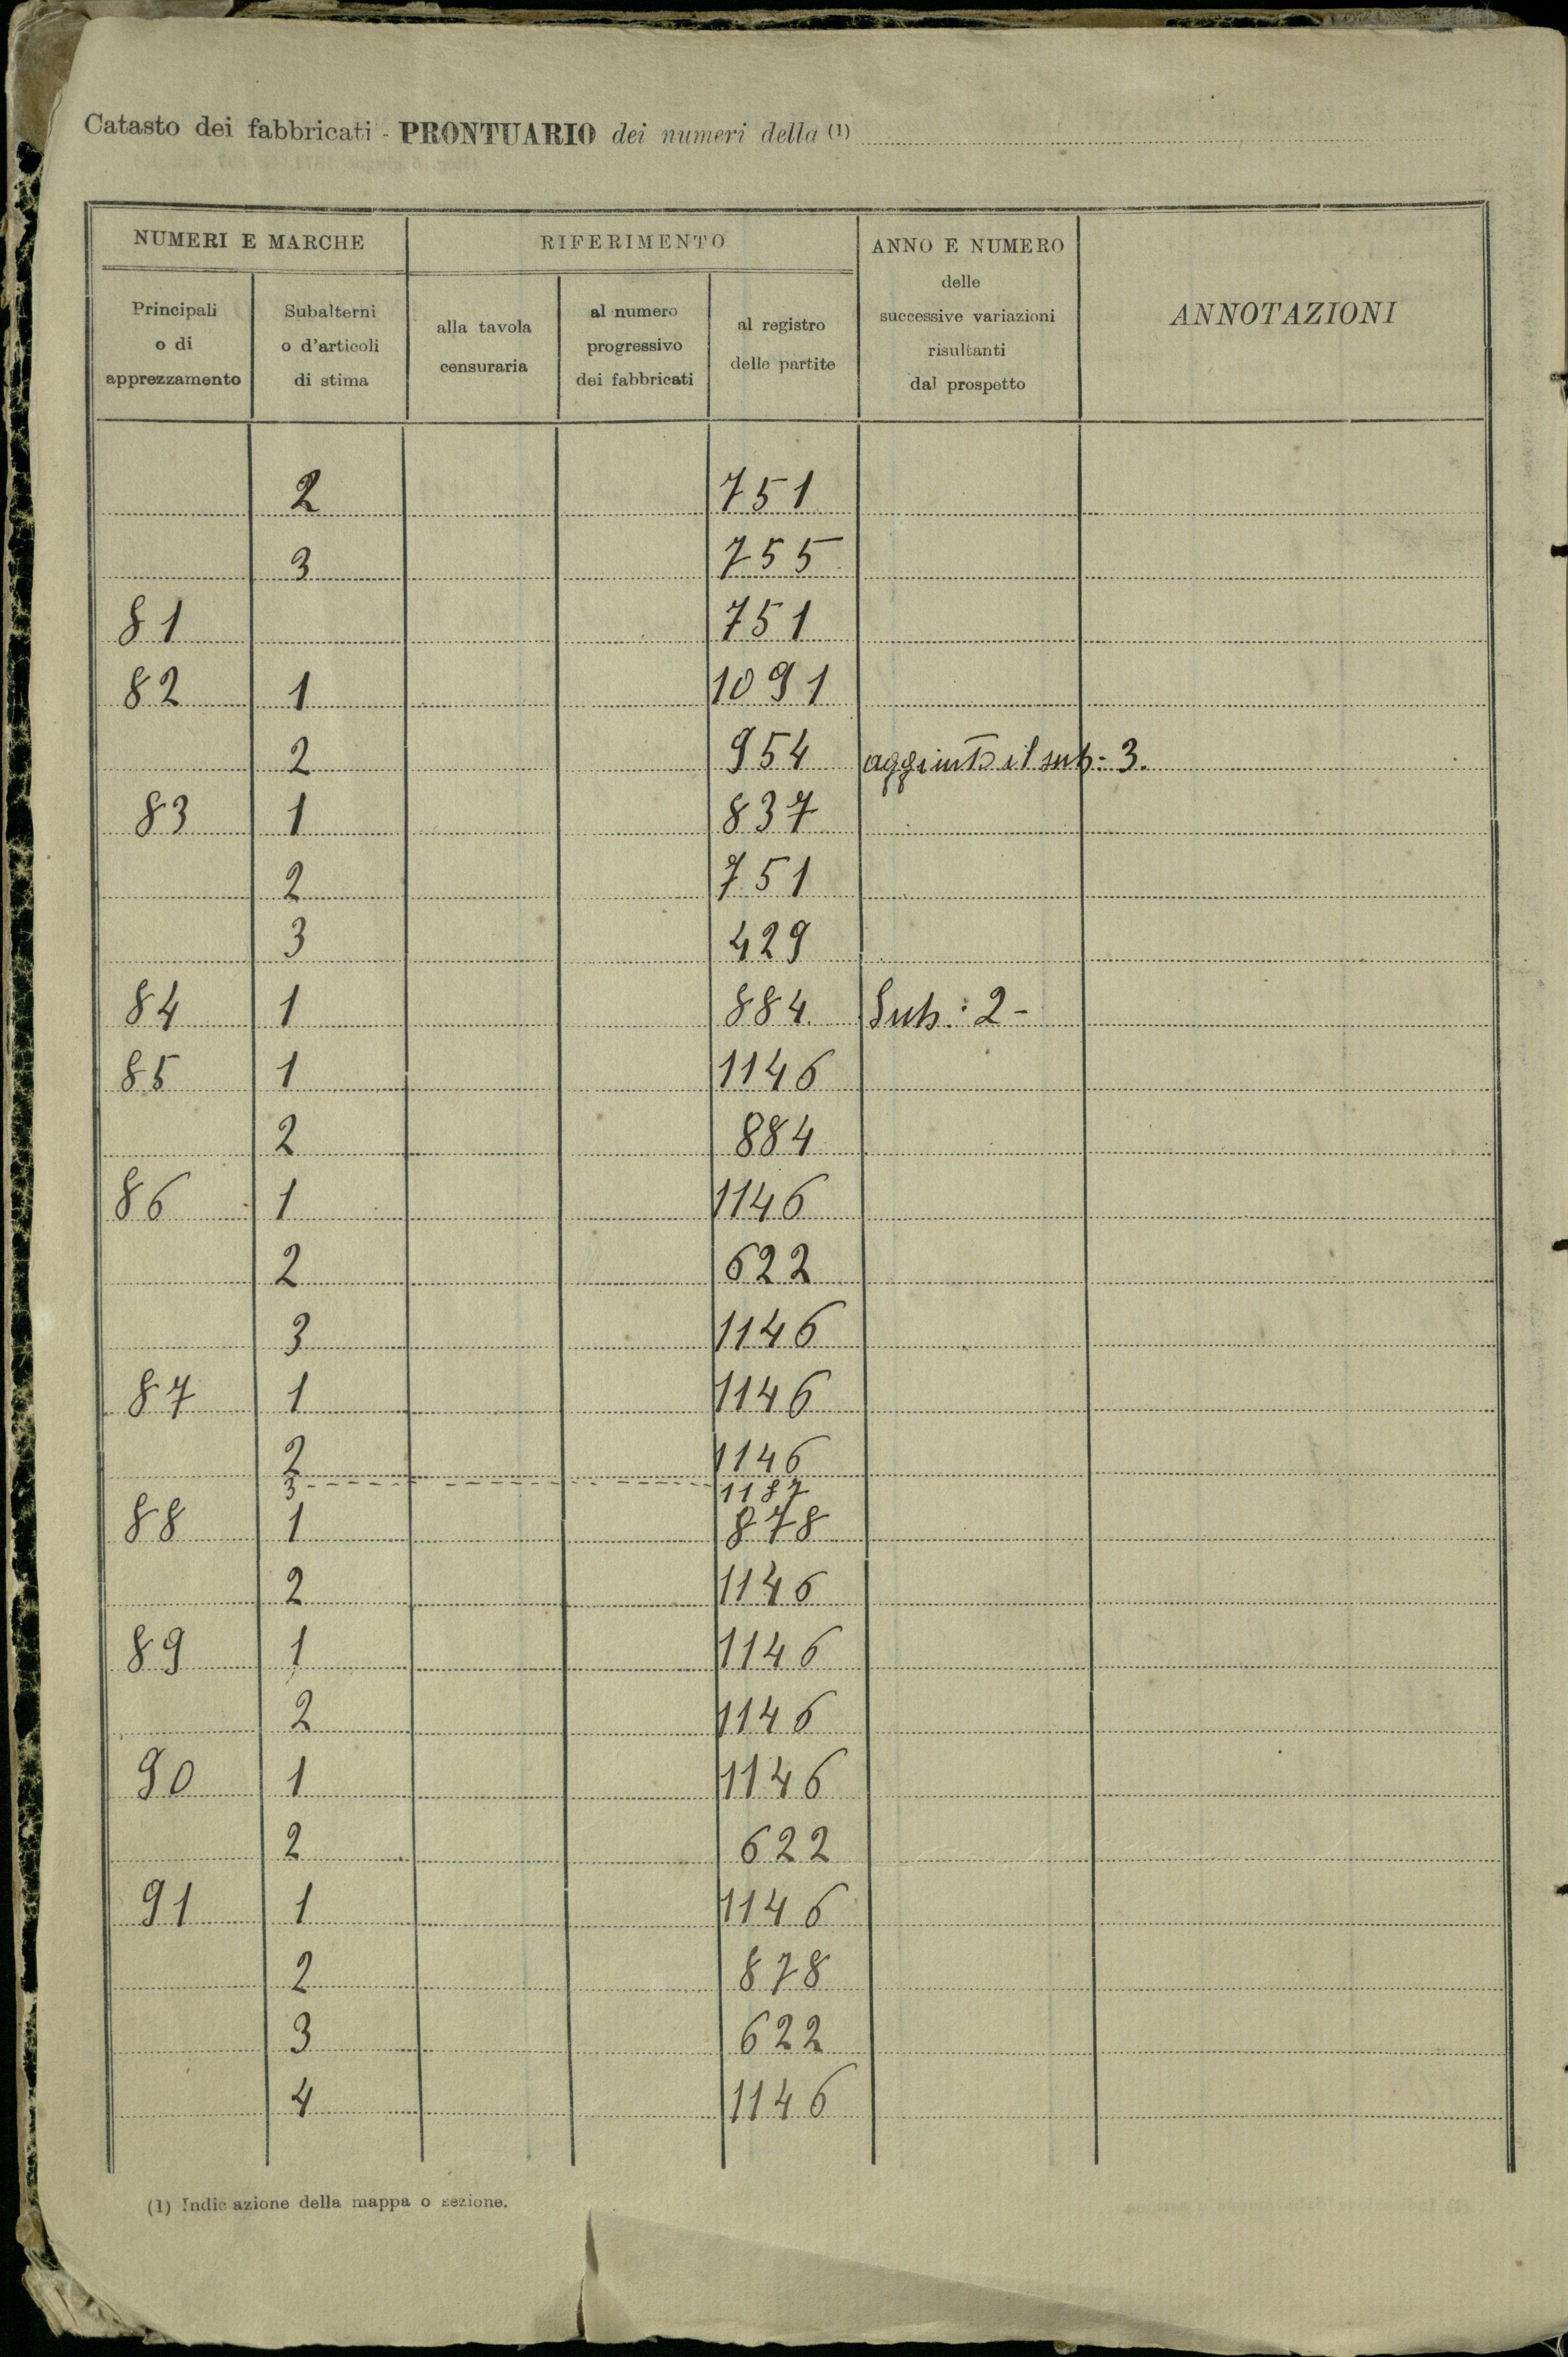 Catasto dei fabbricati - PRONTUARIO dei numeri della (1)
NUMERI E MARCHE
RIFERIMENTO
ANNO E NUMERO
delle
successive variazioni
risultanti
dal prospetto
ANNOTAZIONI
Principali
o di
apprezzamento
Subalterni
o d'articoli
di stima
alla tavola
censuraria
al numero
progressivo
dei fabbricati
al registro
delle partite
2 751
3 755
81 751
82 1 1091
2 954 aggiunto il sub: 3.
83 1 837
2 751
3 429
84 1 884. Sub: 2-
85 1 1146
2 884
86 1 1146
2 622
3 1146
87 1 1146
2 1146
3 1187
88 1 878
2 1146
89 1 1146
2 1146
90 1 1146
2 622
91 1 1146
2 878
3 622
4 1146
(1) Indicazione della mappa o sezione.